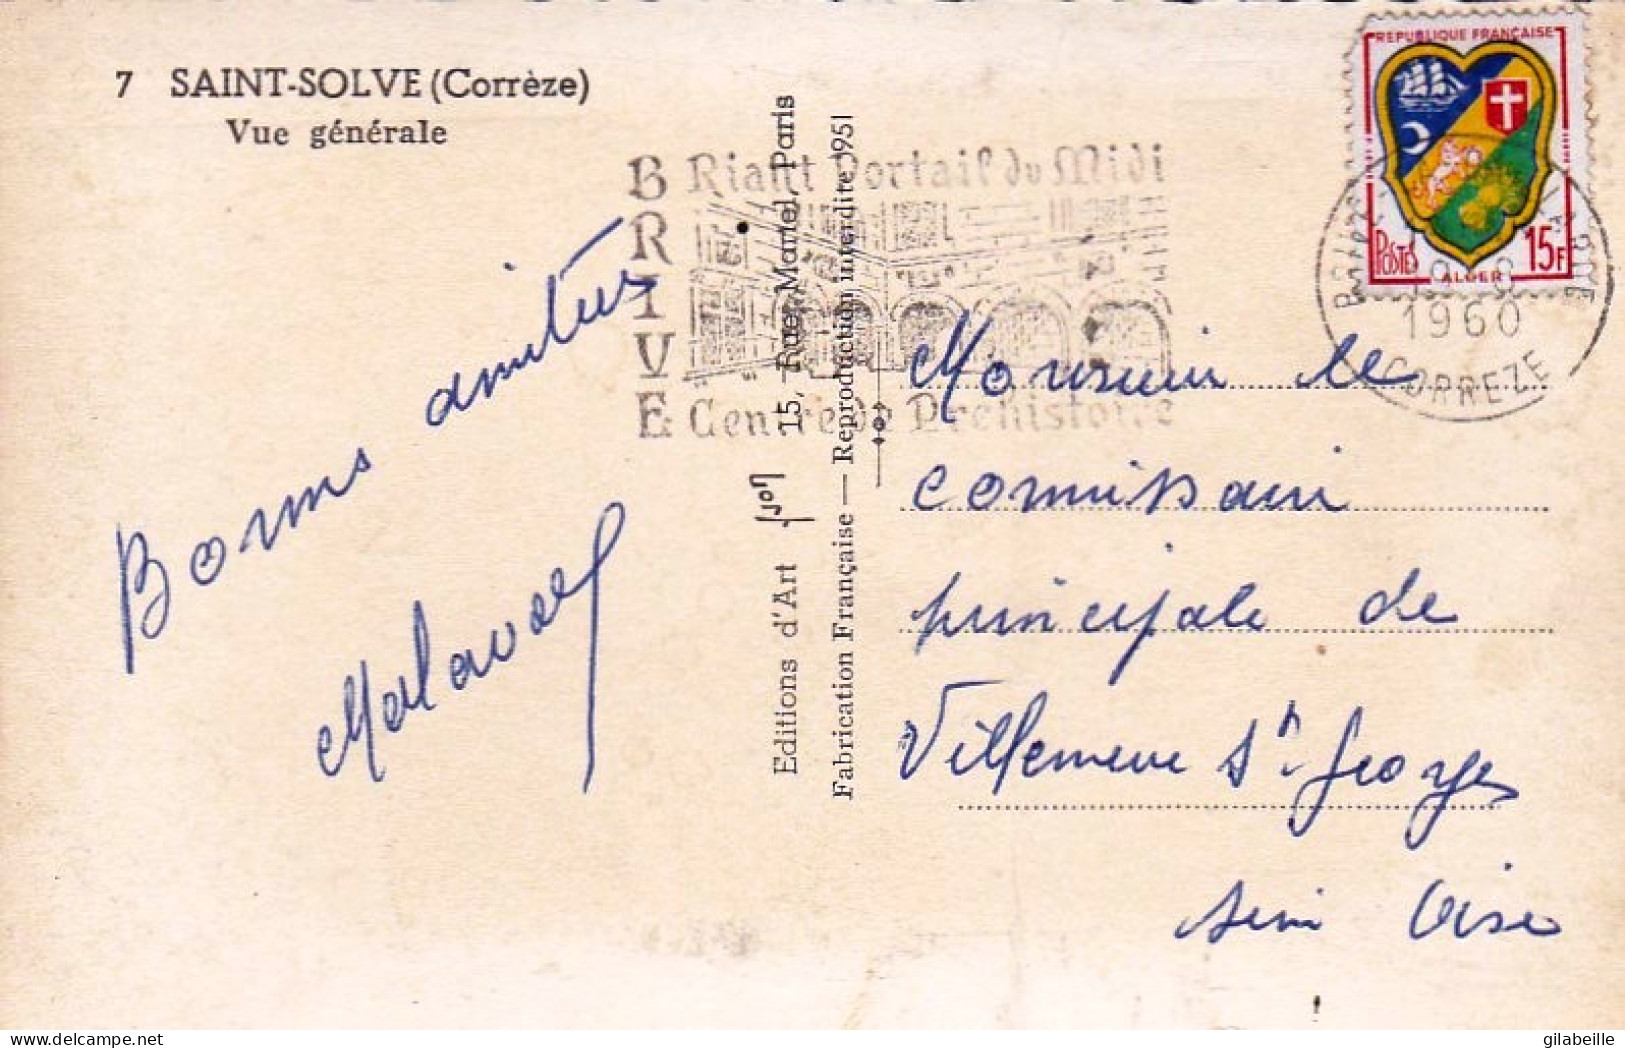 7 SAINT-SOLVE (Corrèze)
Vue générale
Bonnes amitiés
BRIVE
Riant Portail du Midi
Centre de Préhistoire
Editions d'Art 15, Rue Martel, Paris
Fabrication Française — Reproduction interdite 1951
REPUBLIQUE FRANÇAISE
POSTES
ALGER
15F
1960
CORREZE
Monsieur le
commissaire
principale de
Villeneuve St Georges
Seine Oise
gilabeille